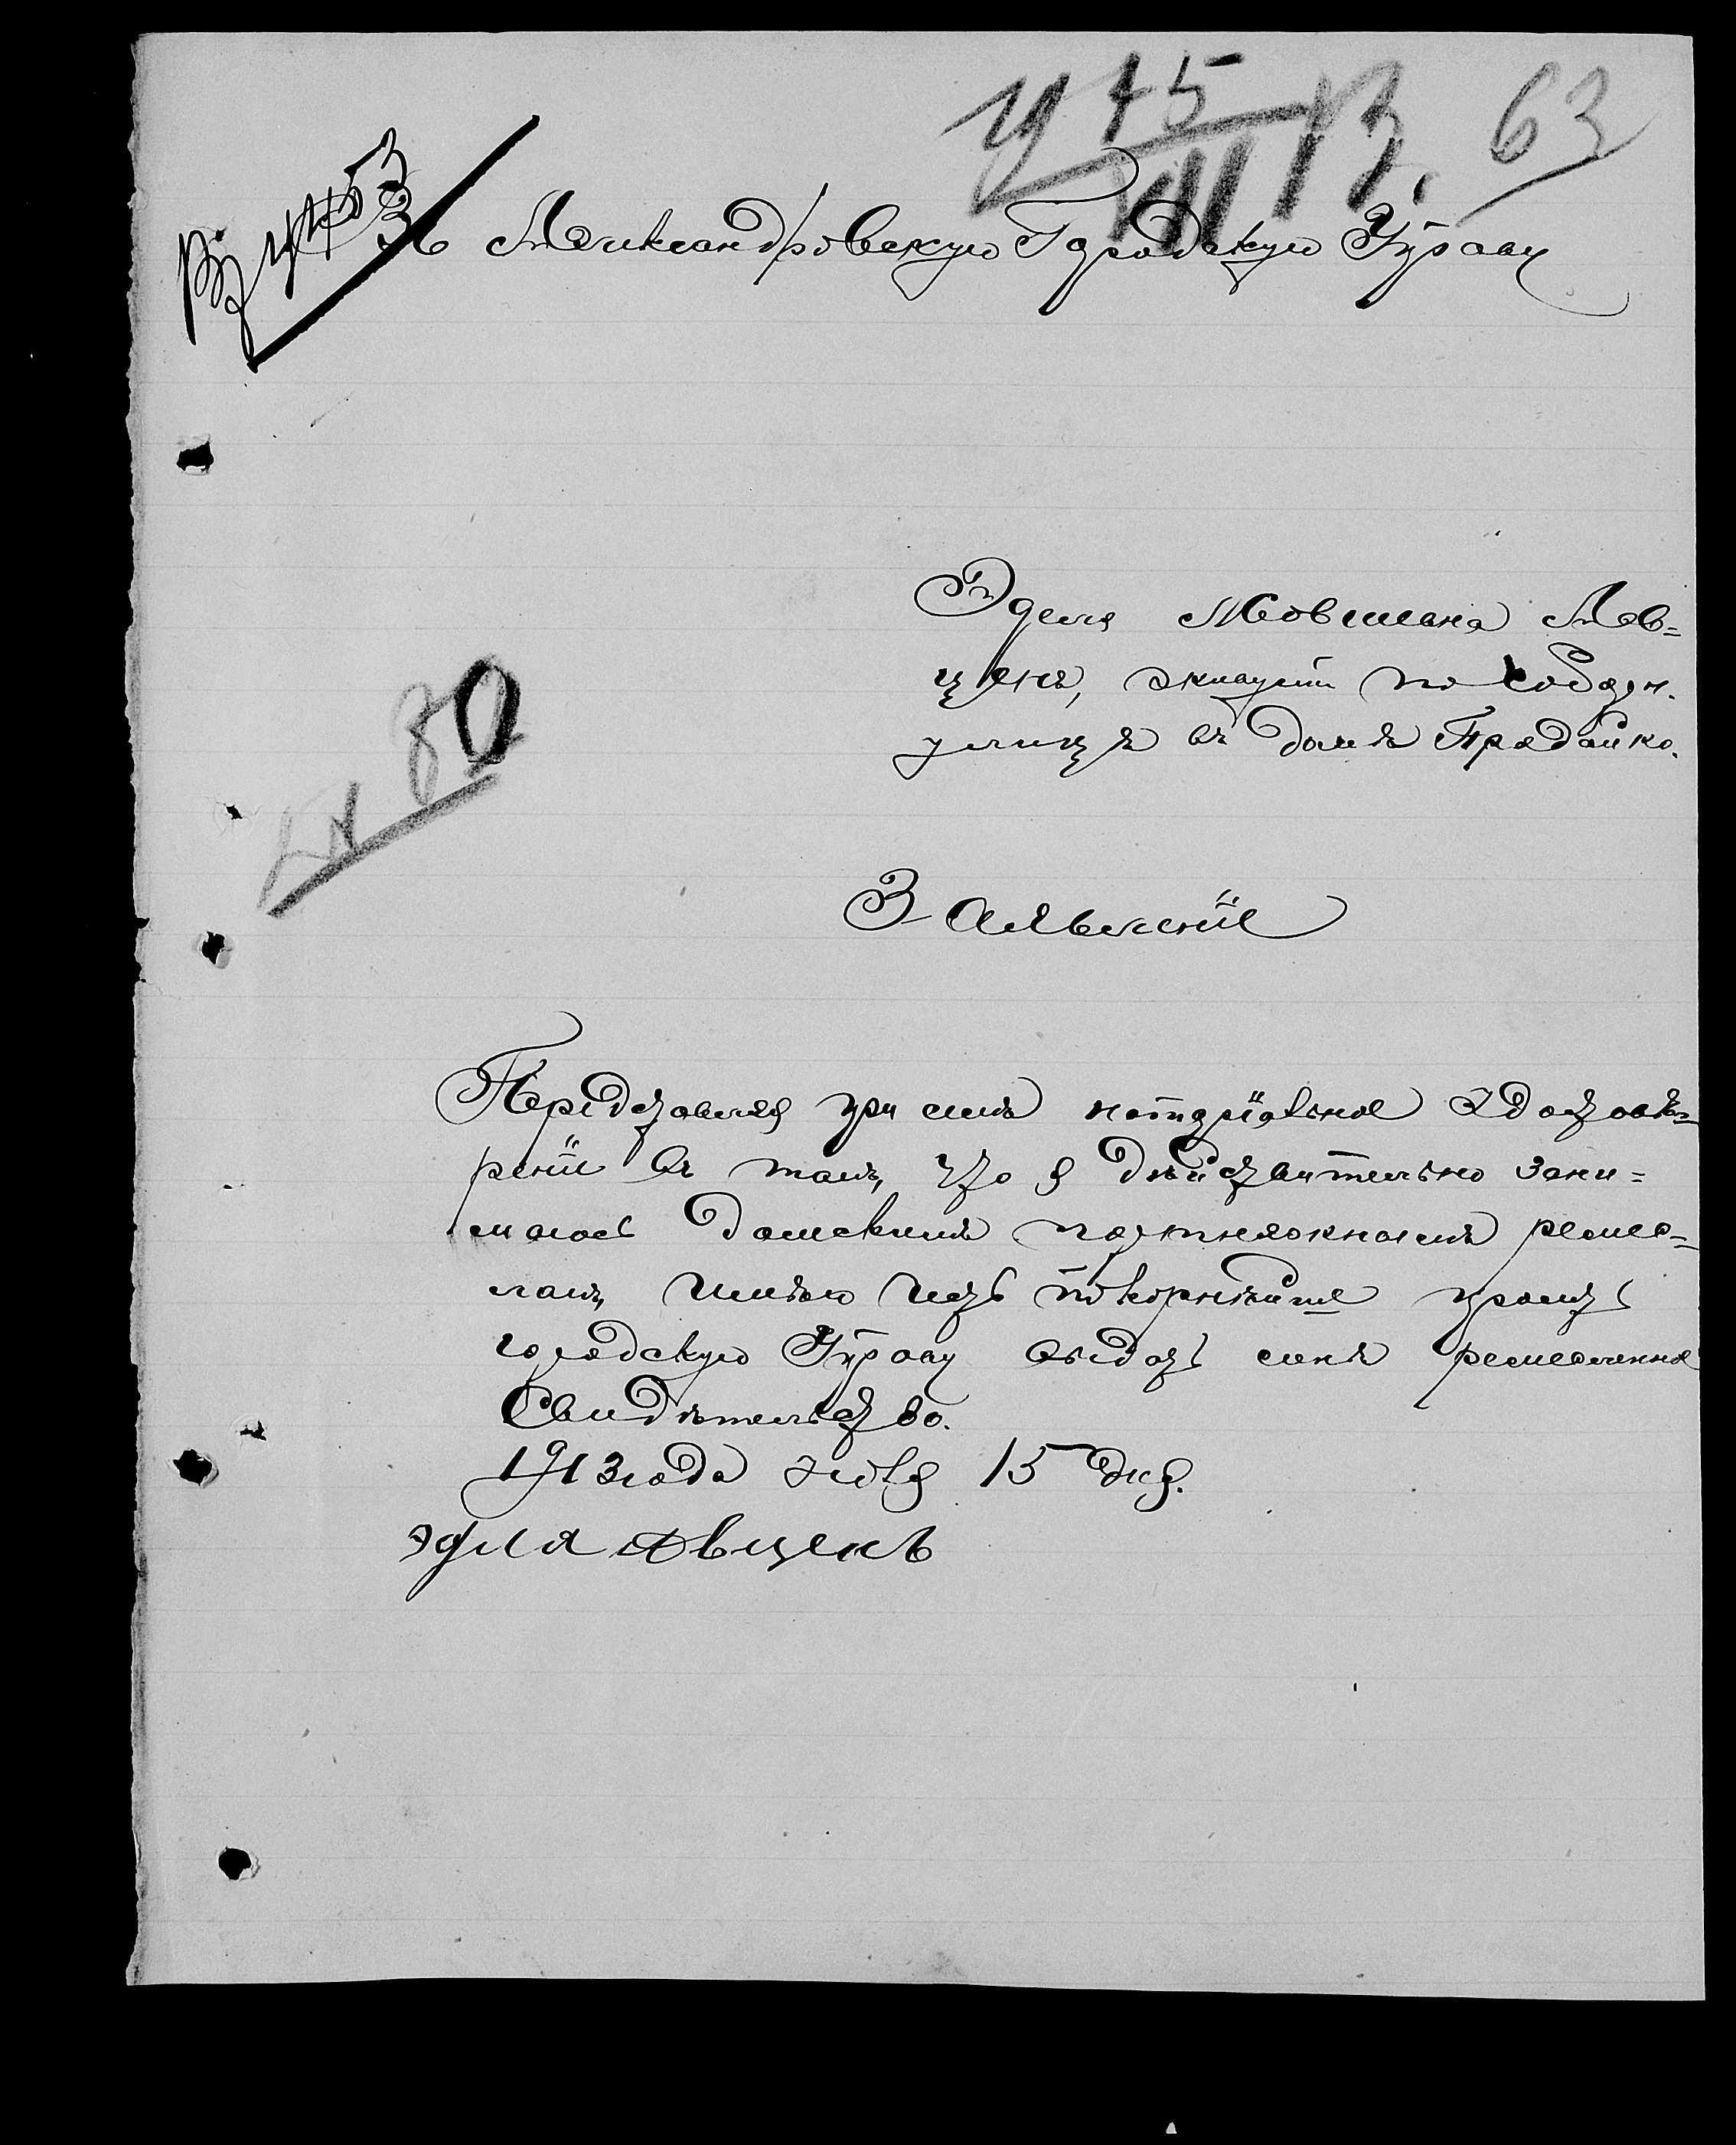 у 15/VII 13. 63
Въ Александровскую Городскую Управу
Эделя Мовшева Лев=
цекъ, живущий по Собор н.
улицѣ въ домѣ Прадайко.
№ 80
Заявление
Предъзтавляя при семъ нотарiальное Удостовѣ=
ренiе въ томъ, что я дѣйствительно зани=
маюсь Дамскимъ портняжнымъ ремес=
ломъ, имѣю честь покорнѣйше просить
городскую Управу выдать мнѣ ремесленное
Свидѣтельство.
1913 года Iюля 15 Дня.
Эделя Лвцекъ